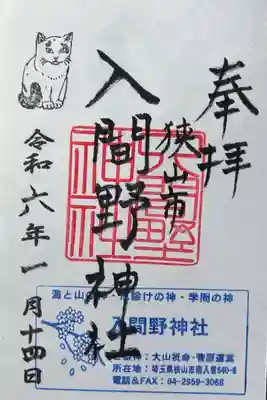 奉拝
狭山市
入間野神社
令和六年一月十四日
海と山の神・厄除けの神・学問の神
入間野神社
御祭神：大山祇命・菅原道真
所在地：埼玉県狭山市南入曽640-8
電話＆FAX：04-2959-3068